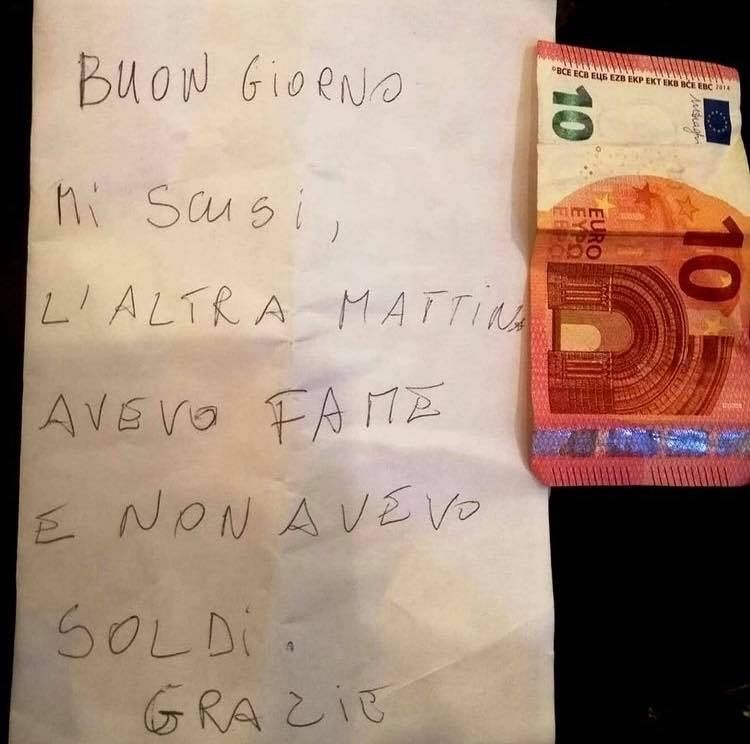 BUON GIORNO
MI SCUSI,
L'ALTRA MATTINA
AVEVO FAME
E NON AVEVO
SOLDI.
GRAZIE
©BCE ECB ЕЦБ EZB EKP EKT EKB BĊE EBC 2014
10
10
EURO
ΕΥΡΩ
ЕВРО